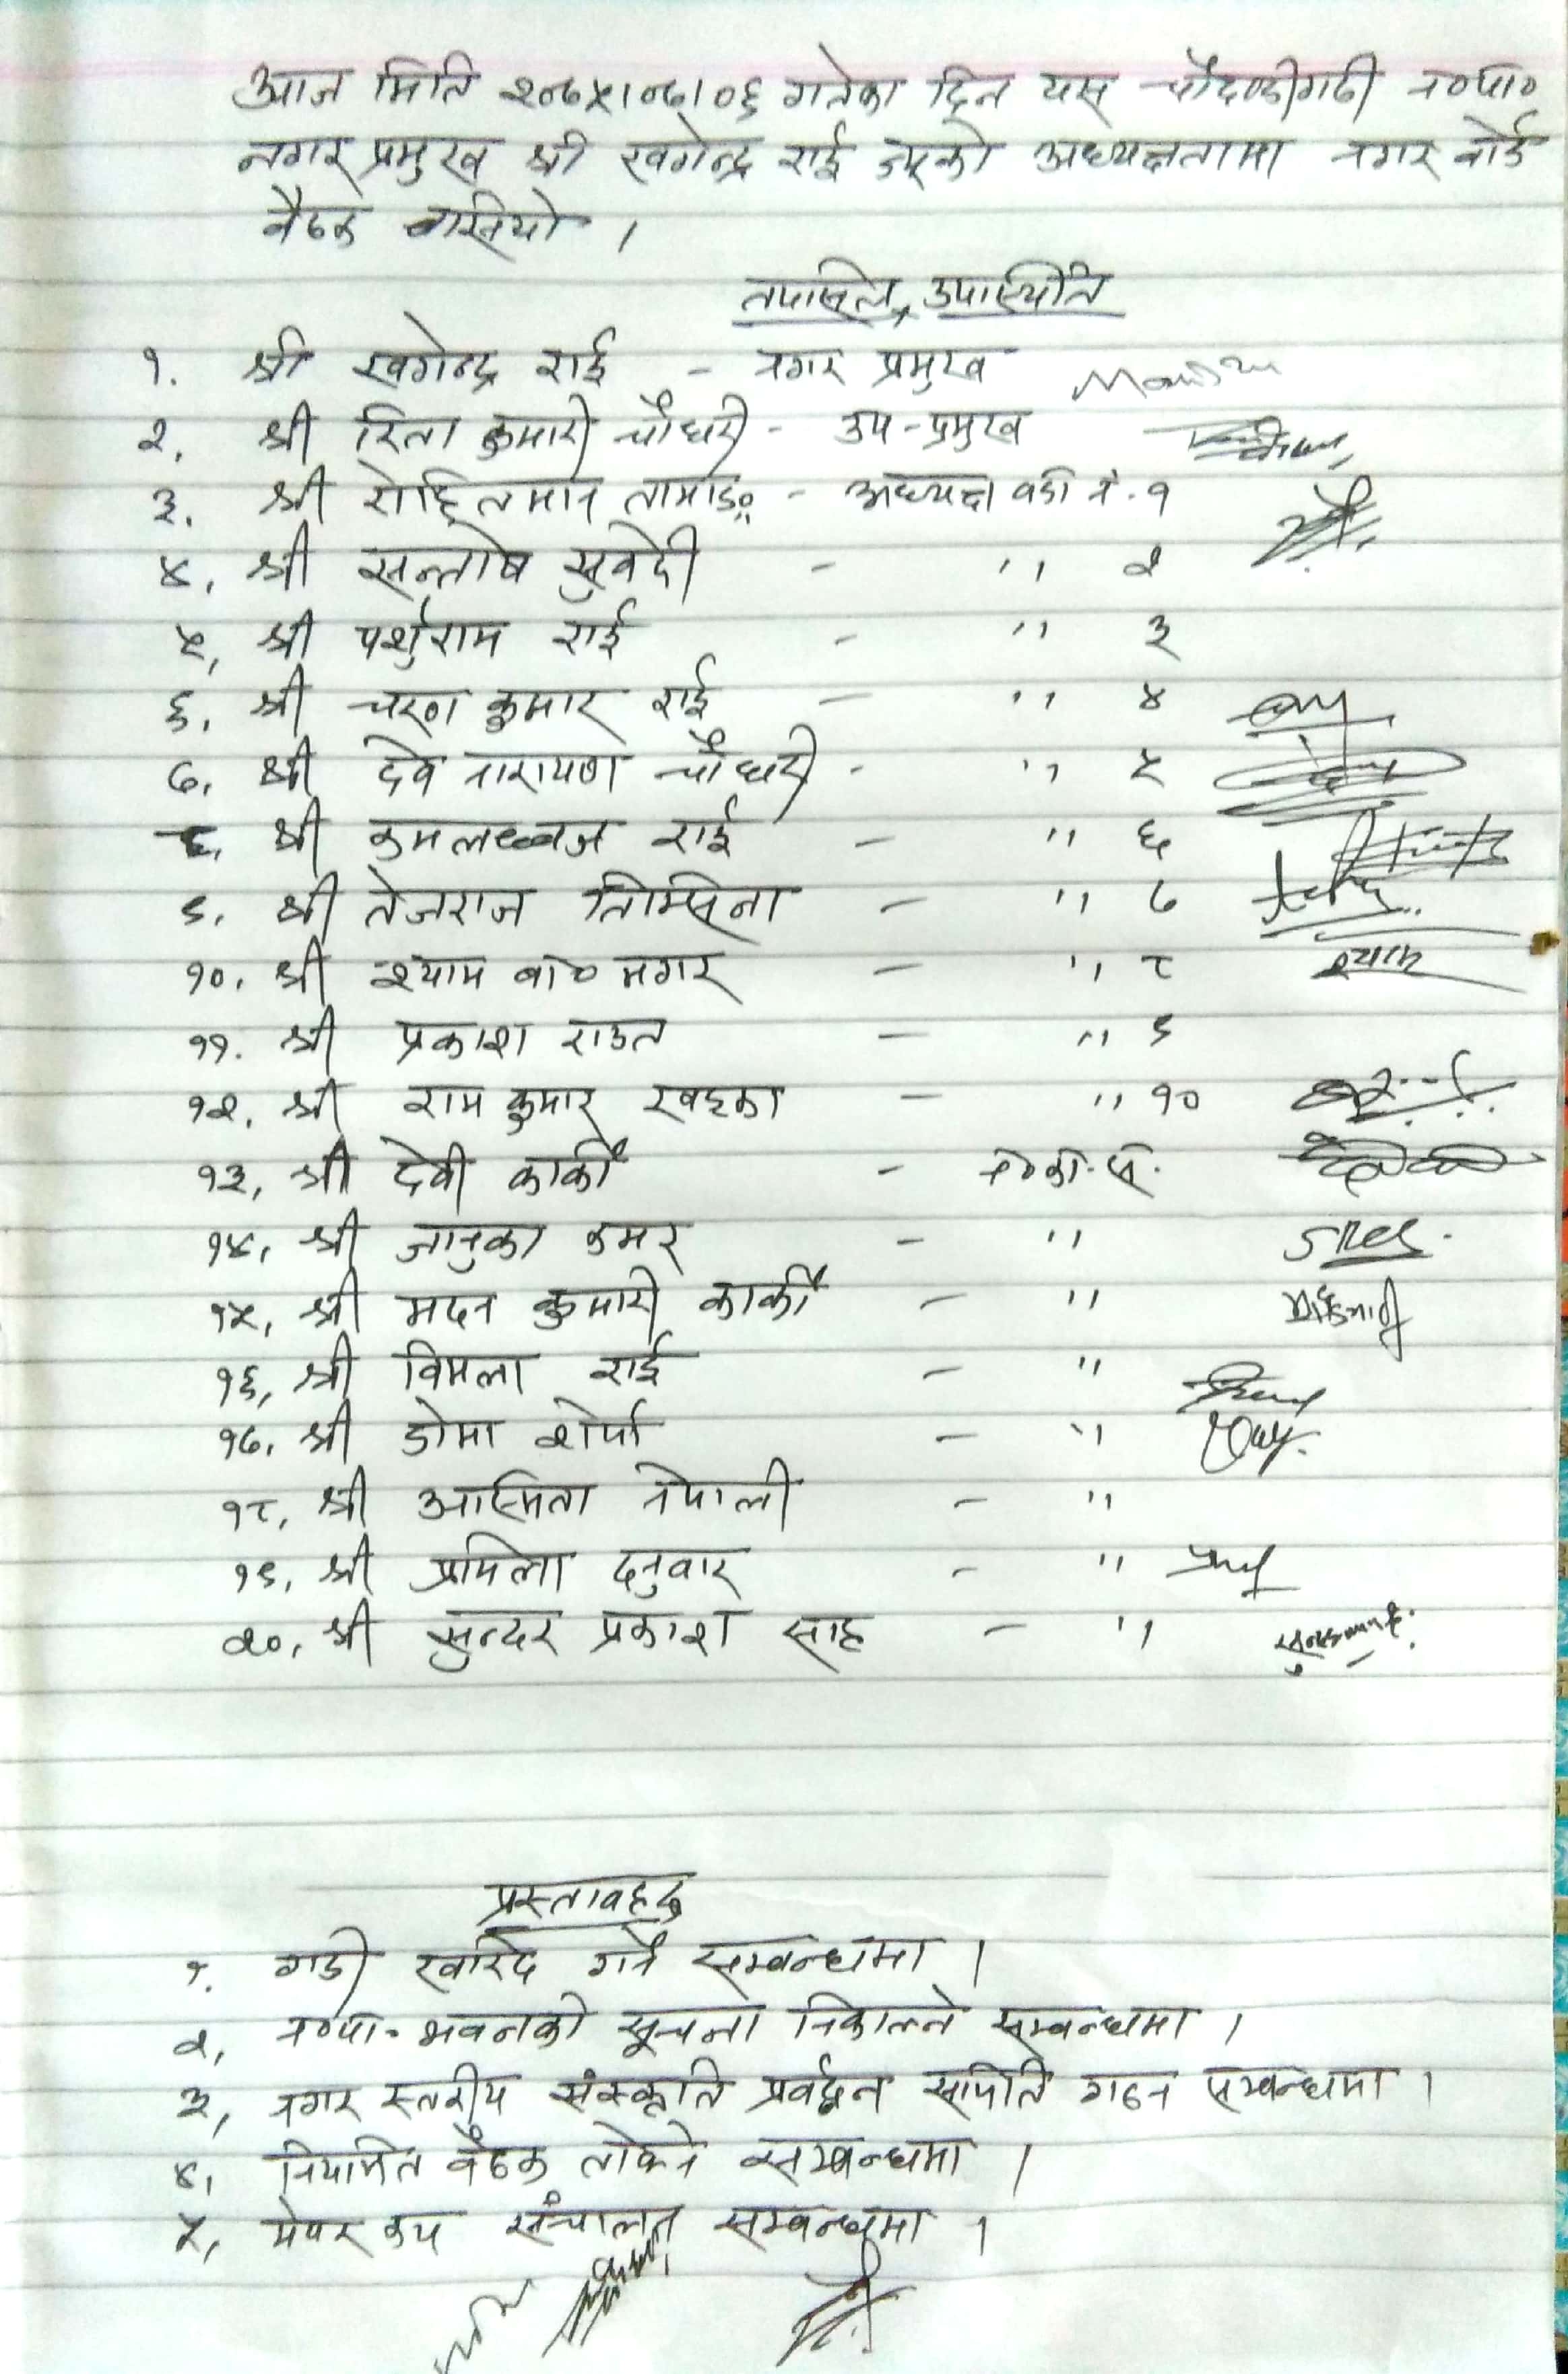 आज मिति २०७५।०७।०६ गतेका दिन यस चौदण्डीगढी न०पा०
नगर प्रमुख श्री खगेन्द्र राई ज्यूको अध्यक्षतामा नगर बोर्ड
बैठक बसियो ।
तपासिल उपास्थिति
१. श्री खगेन्द्र राई - नगर प्रमुख
२. श्री रिता कुमारी चौधरी - उप-प्रमुख
३. श्री रोहितमान तामाङ - अध्यक्ष वडा नं. १
४. श्री सन्तोष सुवेदी - '' २
५. श्री पर्शुराम राई - '' ३
६. श्री चरण कुमार राई - '' ४
७. श्री देव नारायण चौधरी - '' ५
८. श्री कमलध्वज राई - '' ६
९. श्री तेजराज तिम्सिना - '' ७
१०. श्री श्याम बा० मगर - '' ८ श्याम
११. श्री प्रकाश राउत - '' ९
१२. श्री राम कुमार खड्का - '' १०
१३. श्री देवी कार्की - न०का.स.
१४. श्री जानुका कमर - ''
१५. श्री मदन कुमारी कार्की - ''
१६. श्री विमला राई - ''
१७. श्री डोमा शेर्पा - ''
१८. श्री आस्मिता नेपाली - ''
१९. श्री प्रमिला दनुवार - ''
२०. श्री सुन्दर प्रकाश साह - ''
प्रस्तावहरु
१. गाडी खरिद गर्ने सम्बन्धमा ।
२. न०पा. भवनको सूचना निकाल्ने सम्बन्धमा ।
३. नगर स्तरीय संस्कृति प्रवर्द्धन समिति गठन सम्बन्धमा ।
४. नियमित बैठक तोक्ने सम्बन्धमा ।
५. मेयर कप संचालन सम्बन्धमा ।